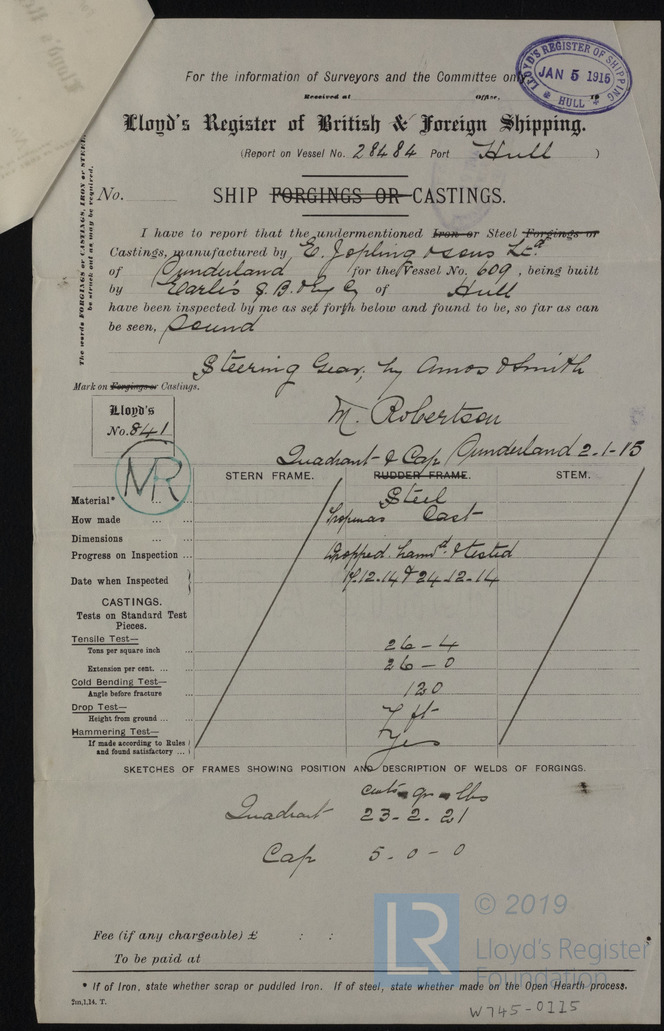 For the information of Surveyors and the Committee only
LLOYD'S REGISTER OF SHIPPING
JAN 5 1915
HULL
Received at Office, 19
Lloyd's Register of British & Foreign Shipping.
(Report on Vessel No. 28484 Port Hull )
No.
SHIP FORGINGS OR CASTINGS.
The words FORGINGS or CASTINGS, IRON or STEEL, to be struck out as may be required.
I have to report that the undermentioned Iron or Steel Forgings or
Castings, manufactured by E. Jopling & Sons Ltd
of Sunderland for the Vessel No. 609, being built
by Earle's S.B. & Eng Co of Hull
have been inspected by me as set forth below and found to be, so far as can
be seen, Sound
Steering Gear, by Amos & Smith
Mark on Forgings or Castings.
Lloyd's
No. 841
MR
M. Robertson
Quadrant & Cap Sunderland 2-1-15
STERN FRAME. RUDDER FRAME. STEM.
Material* ... ... Steel
How made ... ... Cast
Dimensions ... ...
Progress on Inspection ... Dropped, hamd. & tested
Date when Inspected 24-12-14
CASTINGS.
Tests on Standard Test
Pieces.
Tensile Test—
Tons per square inch ... 26-4
Extension per cent. ... ... 26-0
Cold Bending Test—
Angle before fracture ... 120
Drop Test—
Height from ground ... ... 7 ft
Hammering Test— Yes
If made according to Rules
and found satisfactory ...
SKETCHES OF FRAMES SHOWING POSITION AND DESCRIPTION OF WELDS OF FORGINGS.
cwts qr lbs
Quadrant 23-2-21
Cap 5-0-0
© 2019
LR
Lloyd's Register
Foundation
Fee (if any chargeable) £ : :
To be paid at
* If of Iron, state whether scrap or puddled Iron. If of steel, state whether made on the Open Hearth process.
2m,1,14. T.
W745-0115